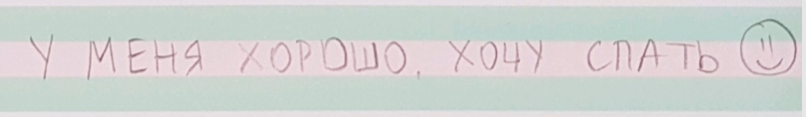 У МЕНЯ ХОРОШО, ХОЧУ СПАТЬ